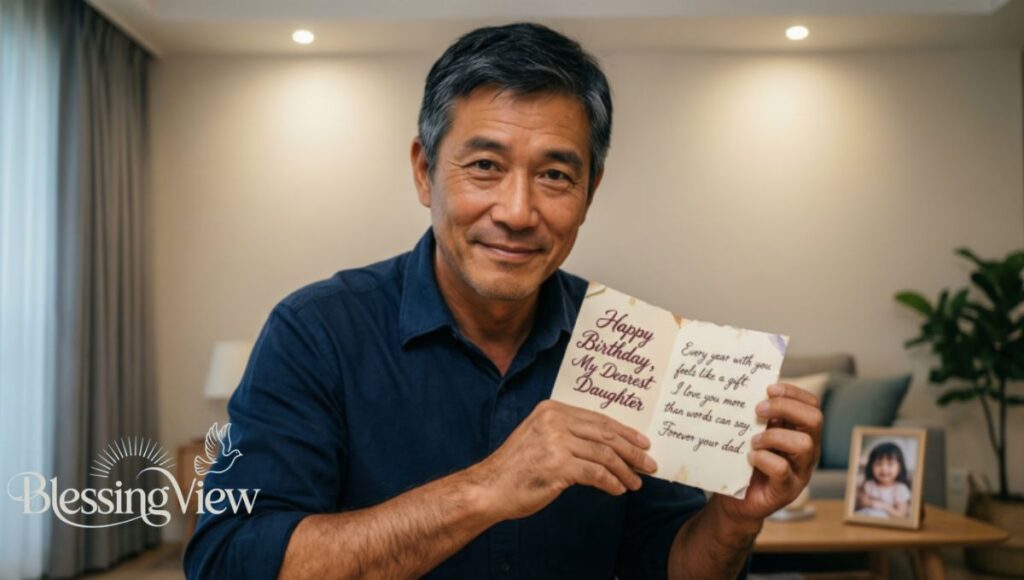 Happy
Birthday,
My Dearest
Daughter
Every year with you
feels like a gift.
I love you more
than words can say.
Forever your dad.
BlessingView